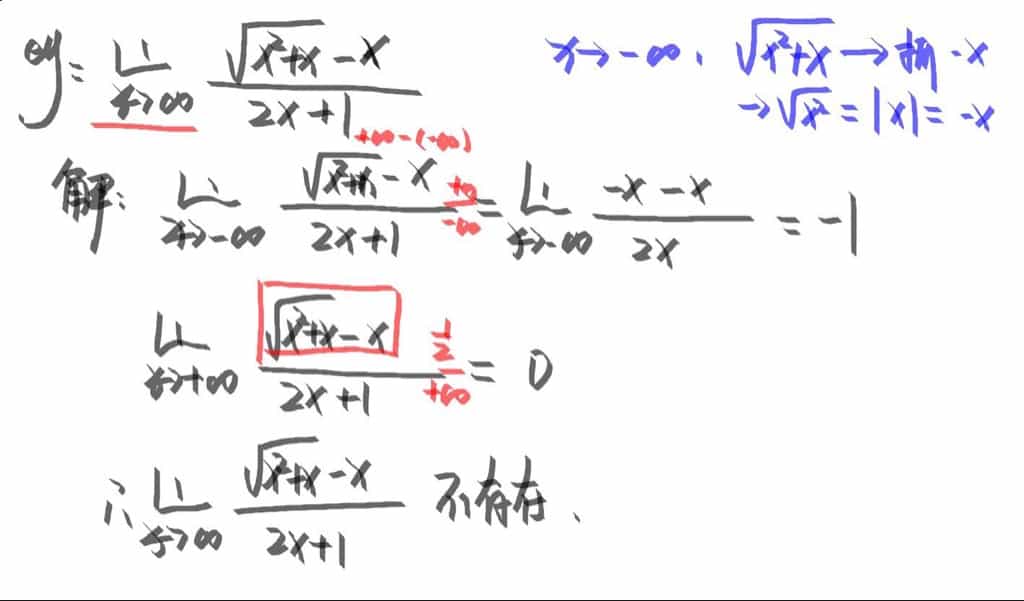 eg: lim x→∞ (√(x²+x) - x)/(2x+1)
x→-∞, √(x²+x) → 抓 -x
→ √x² = |x| = -x
+∞-(-∞)
解: lim x→-∞ (√(x²+x) - x)/(2x+1) +∞/-∞ = lim x→-∞ (-x-x)/(2x) = -1
lim x→+∞ (√(x²+x) - x)/(2x+1) (1/2)/+∞ = 0
∴ lim x→∞ (√(x²+x) - x)/(2x+1) 不存在.